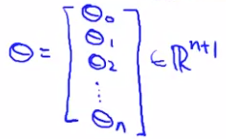 Θ = [Θ₀
Θ₁
Θ₂
⋮
Θₙ] ∈ ℝⁿ⁺¹